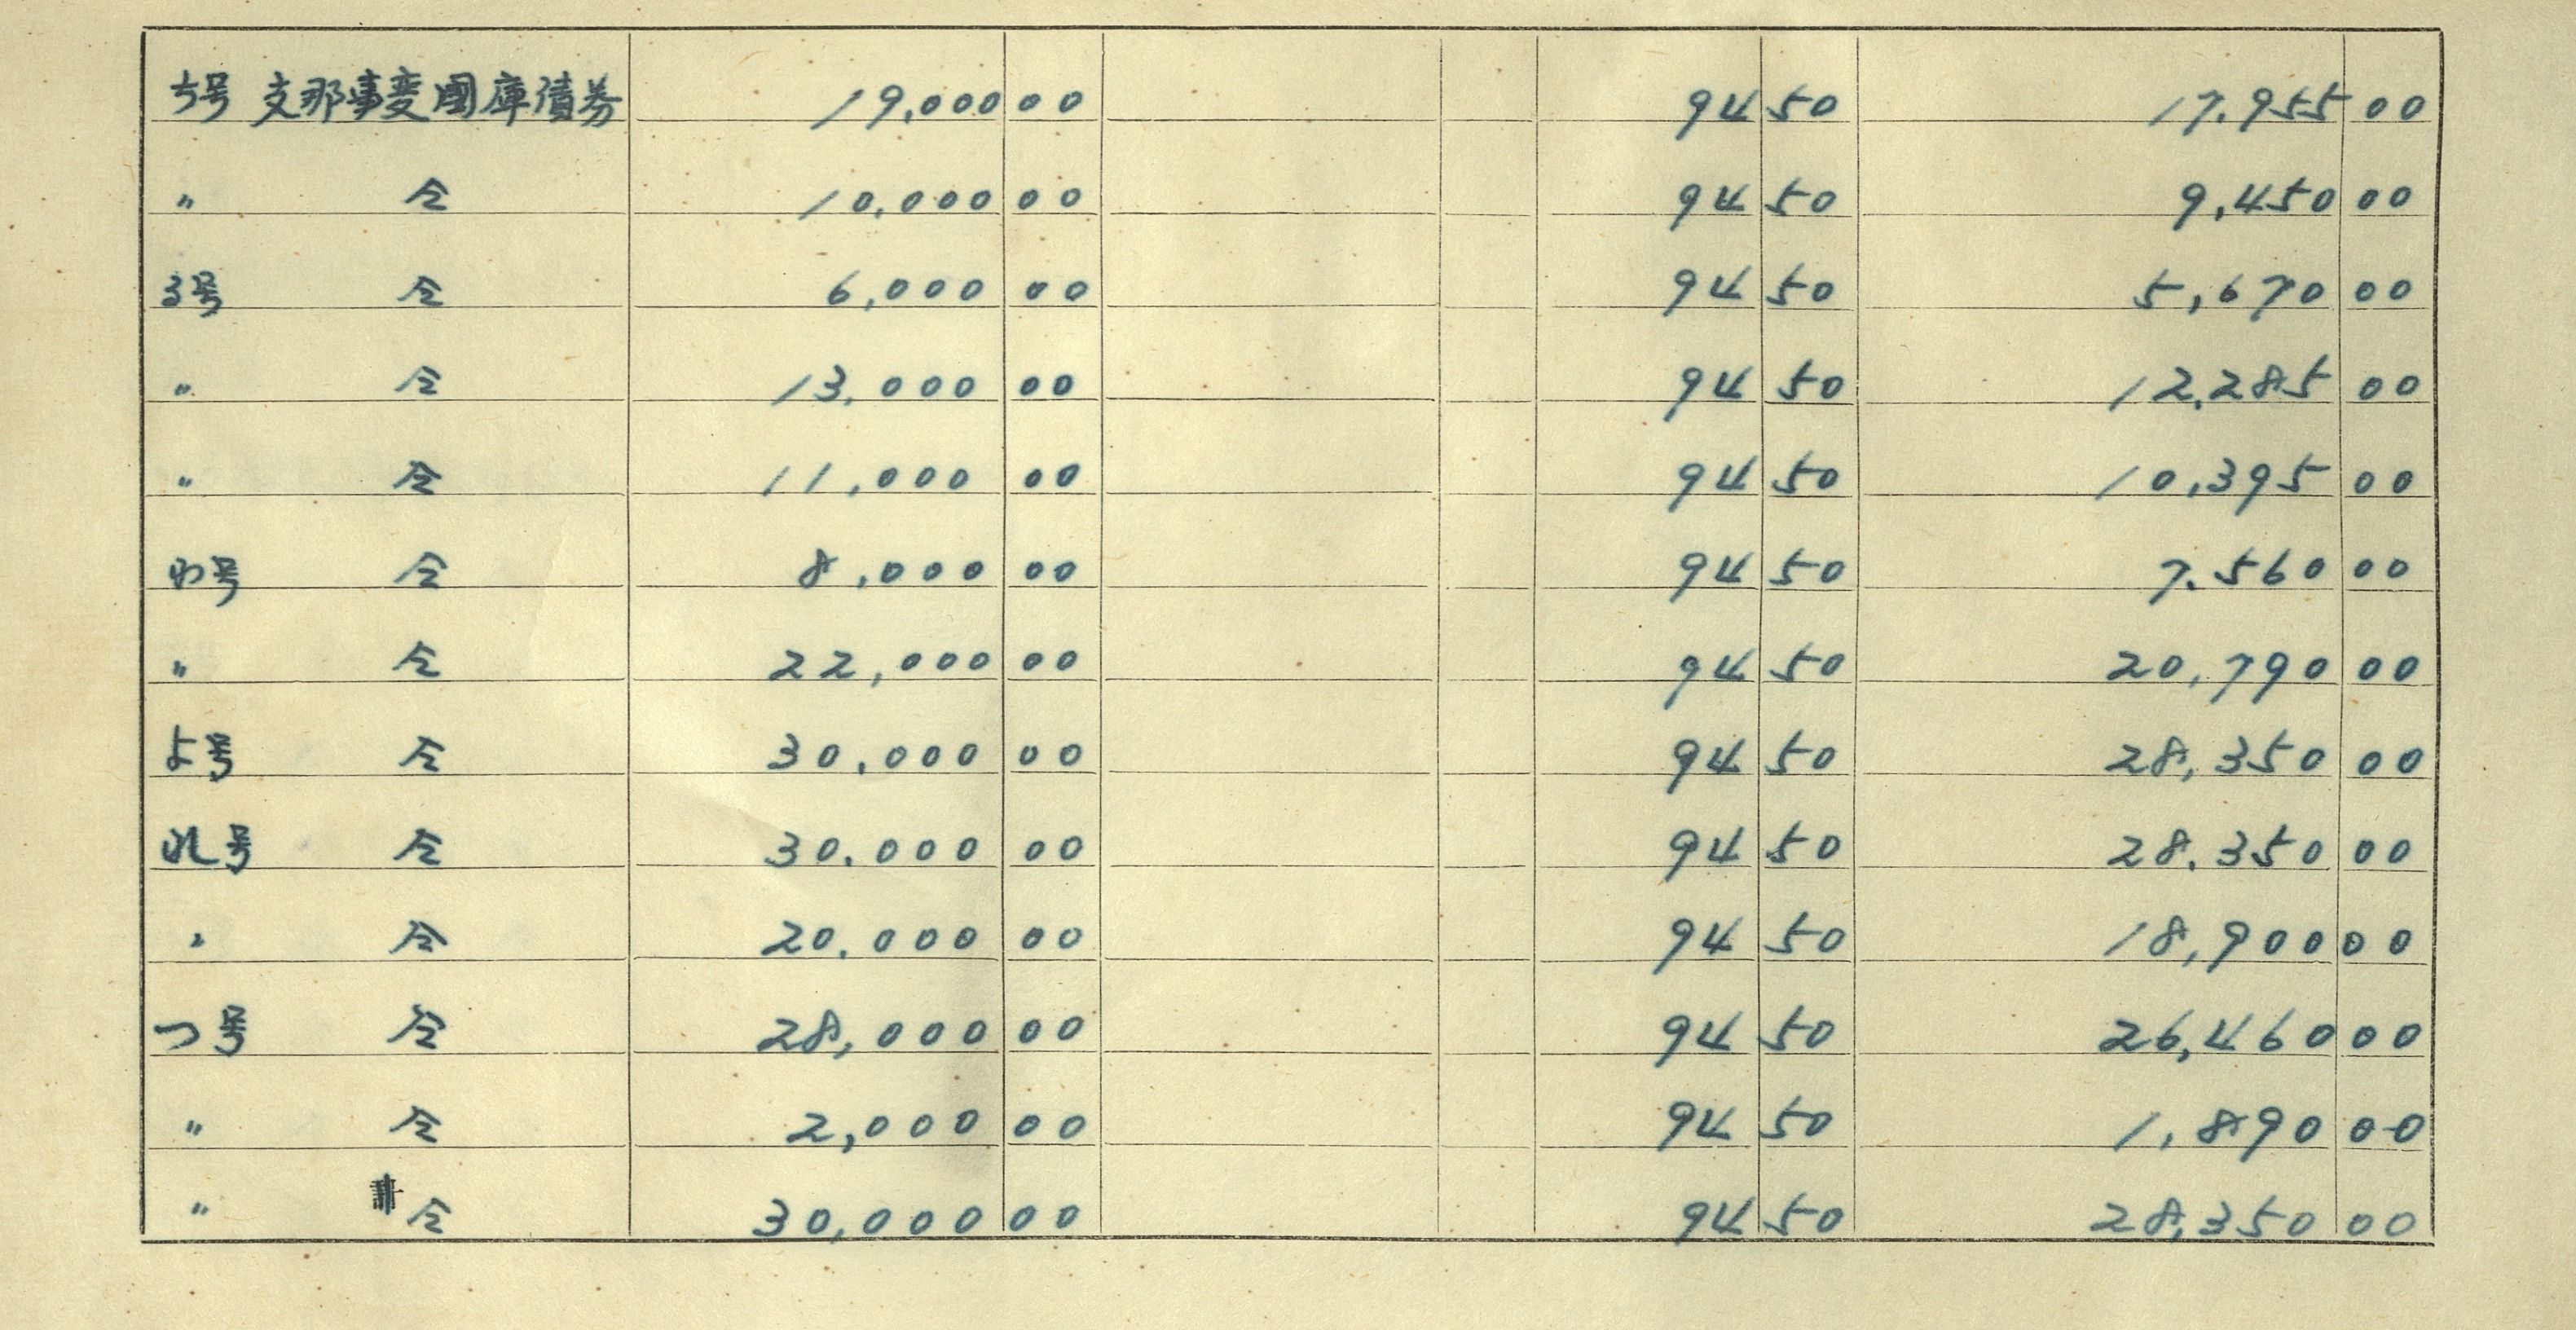 ち号 支那事変國庫債券 19,000 00 94 50 17,955 00
〃 仝 10,000 00 94 50 9,450 00
る号 仝 6,000 00 94 50 5,670 00
〃 仝 13,000 00 94 50 12,285 00
〃 仝 11,000 00 94 50 10,395 00
わ号 仝 8,000 00 94 50 7,560 00
〃 仝 22,000 00 94 50 20,790 00
よ号 仝 30,000 00 94 50 28,350 00
れ号 仝 30,000 00 94 50 28,350 00
〃 仝 20,000 00 94 50 18,900 00
つ号 仝 28,000 00 94 50 26,460 00
〃 仝 2,000 00 94 50 1,890 00
〃 仝 30,000 00 94 50 28,350 00